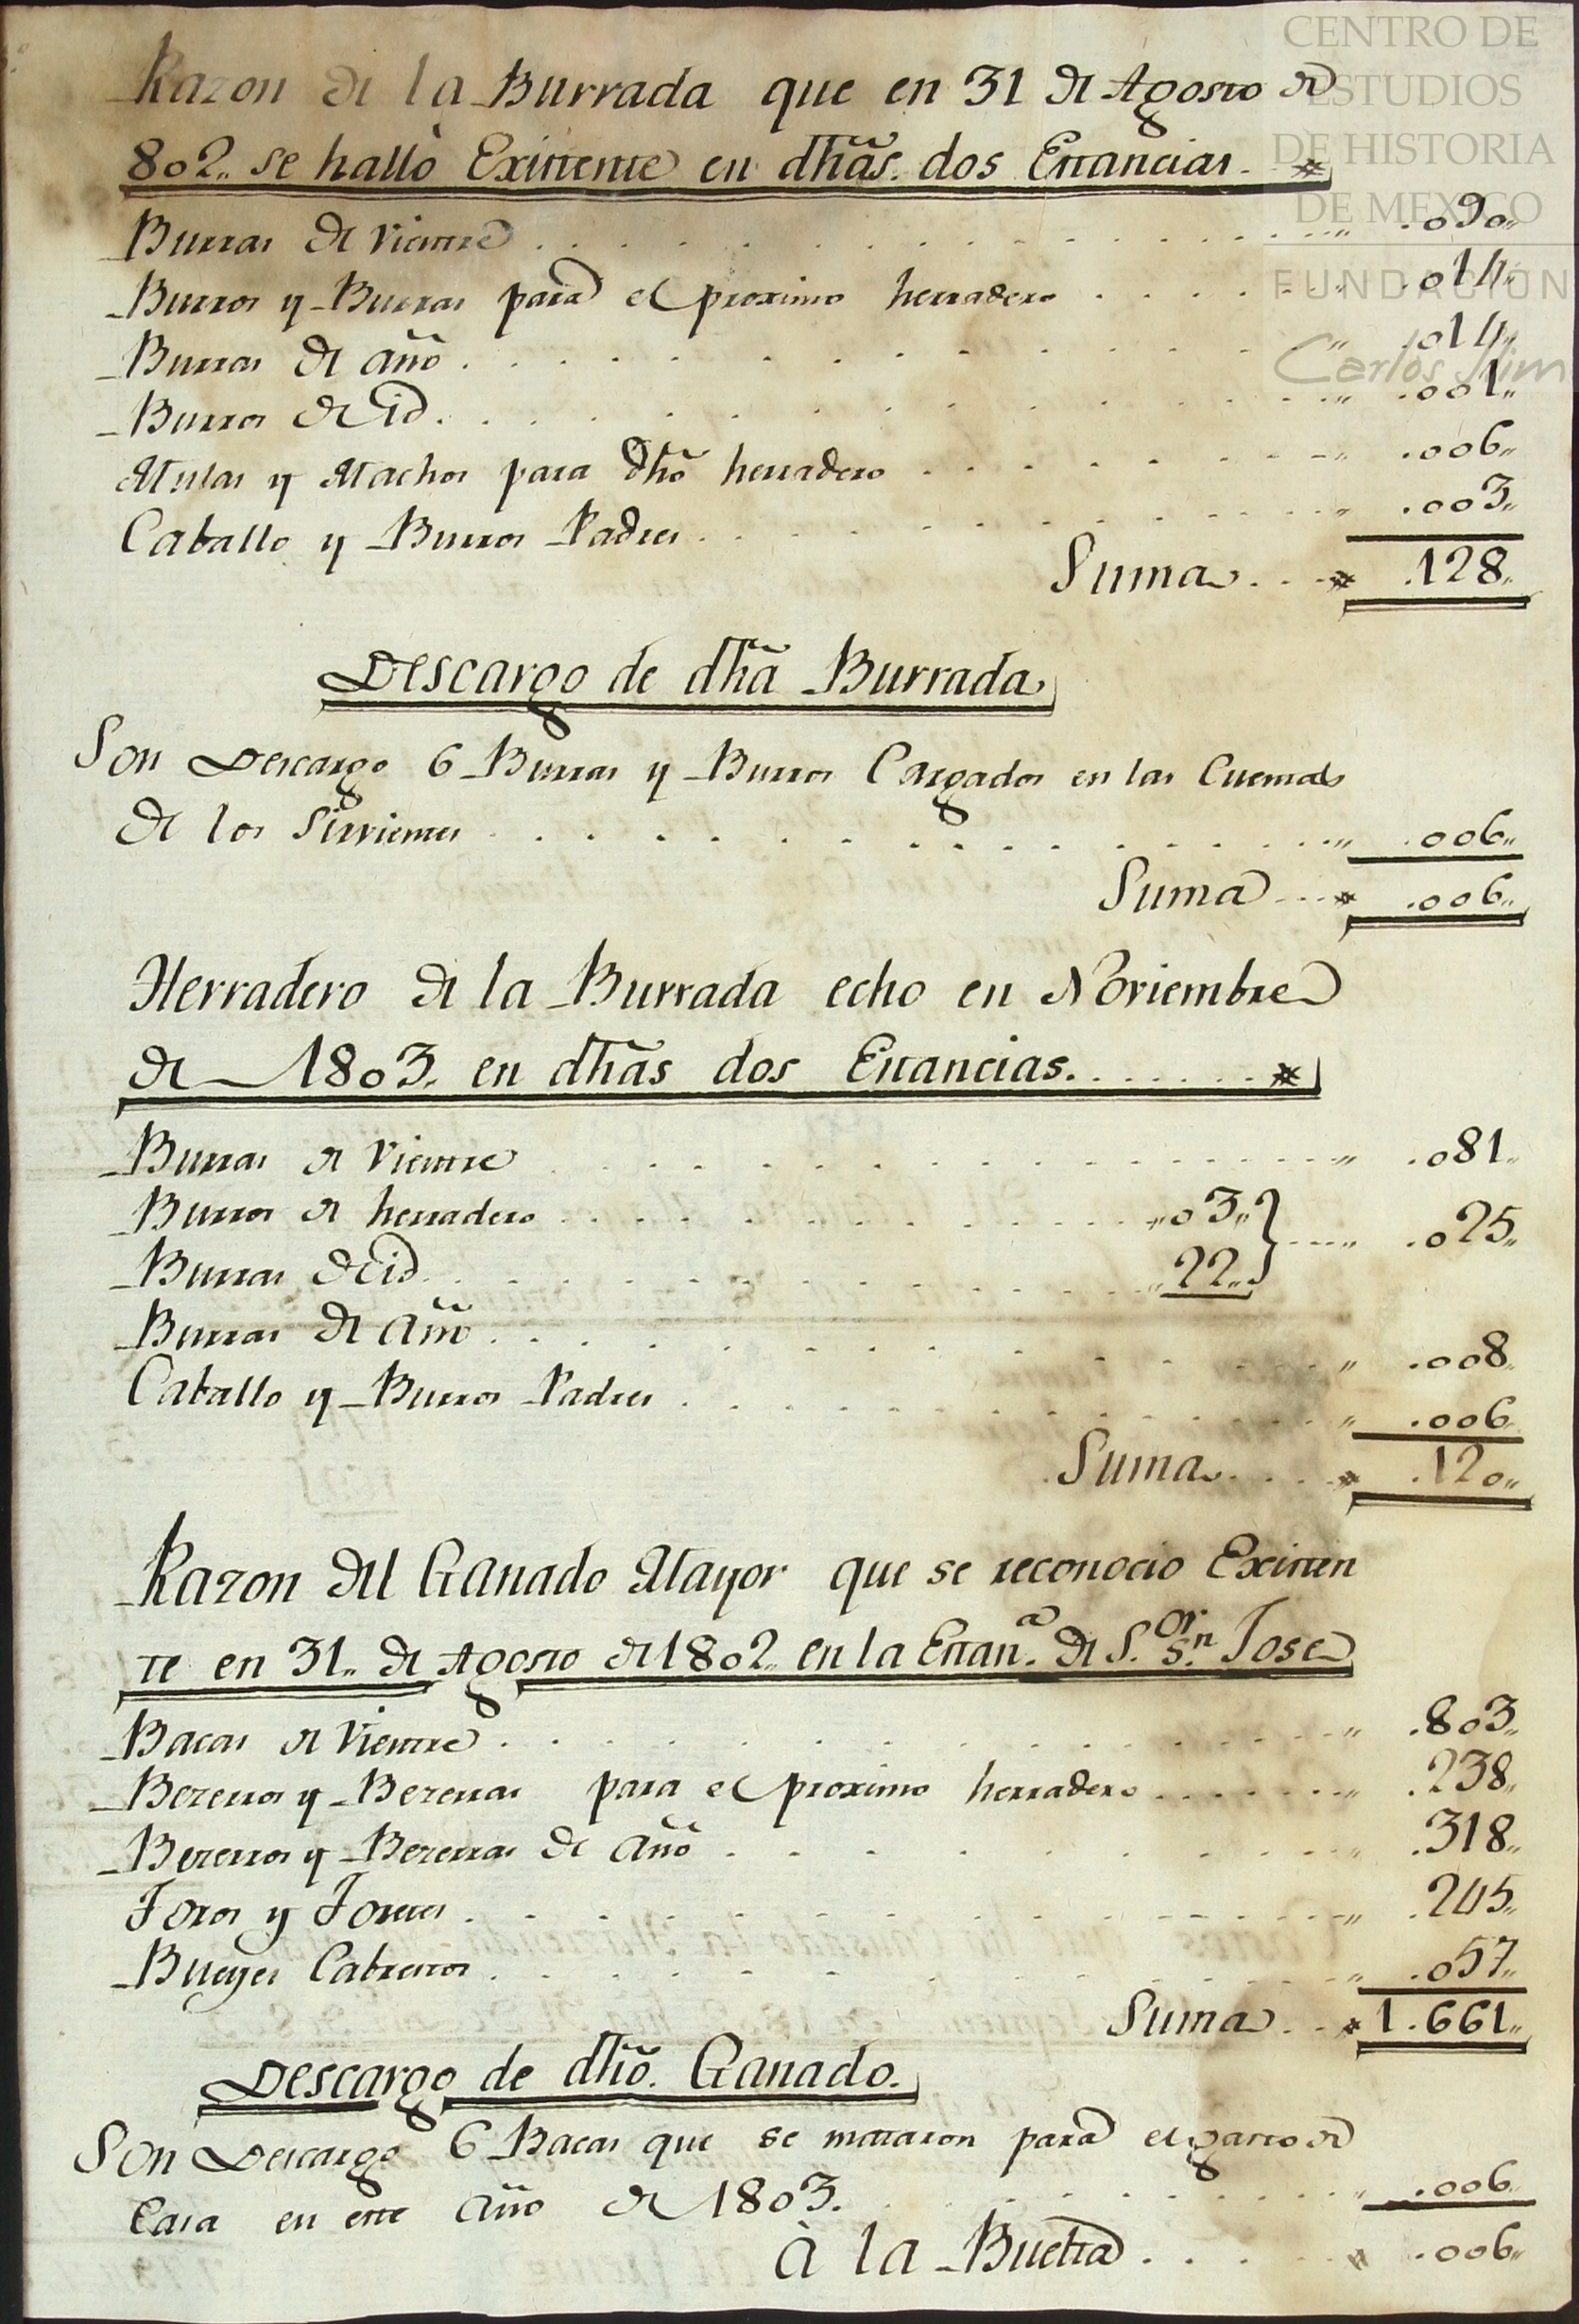 Razon de la Burrada que en 31 de Agosto de
802.. se halló Existente en dhãs. dos Estancias.
Burras de Vientre . . . . " .090"
Burros y Burras para el proximo herradero . . . . " .014"
Burras de año . . . . " .014"
Burros de id. . . . . " .001"
Mulas y Machos para dhõ herradero . . . . " .006"
Caballo y Burros Padres . . . . " .003"
Suma . . . .128"
Descargo de dhã Burrada
Son Descargo 6 Burras y Burros Cargados en las Cuentas
de los Sirvientes . . . . " .006"
Suma . . . .006"
Herradero de la Burrada echo en Noviembre
de 1803. en dhãs dos Estancias. . . . .
Burras de Vientre . . . . " .081"
Burros de herradero . . . . "03" } . . . " .025"
Burras de id. . . . . "22"
Burras de año . . . . " .008"
Caballo y Burros Padres . . . . " .006"
Suma . . . .120"
Razon del Ganado Mayor que se reconocio Existen
te en 31.. de Agosto de 1802.. en la Estan.ª de S.or S.n Jose
Bacas de Vientre . . . . " .803"
Bezerros y Bezerras para el proximo herradero . . . . " .238"
Bezerros y Bezerras de año . . . . " .318"
Toros y Toretes . . . . " .245"
Bueyes Cabrestos . . . . " .057"
Suma . . . 1.661"
Descargo de dhõ. Ganado.
Son Descargo 6 Bacas que se mataron para el gasto de
Casa en este año de 1803. . . . . " .006"
à la Buelta . . . . " .006"
CENTRO DE
ESTUDIOS
DE HISTORIA
DE MEXICO
FUNDACIÓN
Carlos Slim